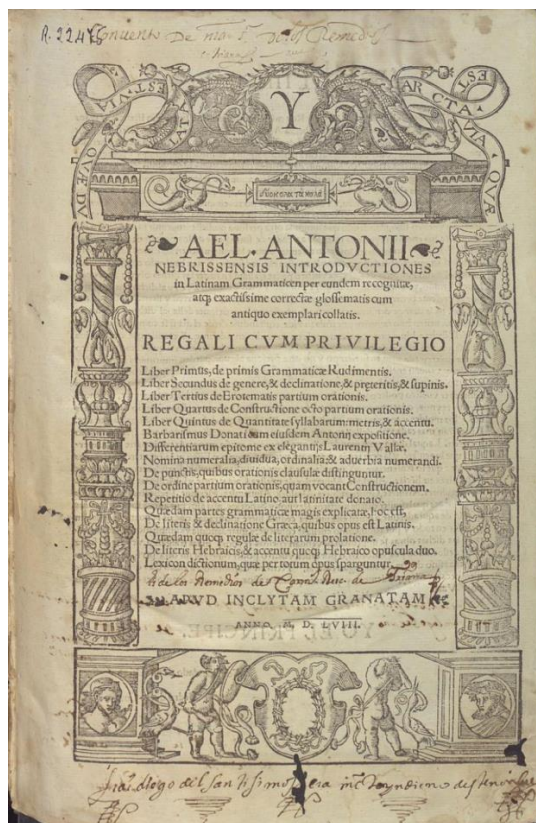 R. 22476 Convento De
EST VIA
LATA
QVE DV
Y
ARCTA
VIA
EST
QVE
AEL. ANTONII
NEBRISSENSIS INTRODVCTIONES
in Latinam Grammaticen per eundem recognitæ,
atq; exactissime correctæ glossematis cum
antiquo exemplari collatis.
REGALI CVM PRIVILEGIO
Liber Primus, de primis Grammaticæ Rudimentis.
Liber Secundus de genere, & declinatione, & præteritis, & supinis.
Liber Tertius de Erotematis partium orationis.
Liber Quartus de Constructione octo partium orationis.
Liber Quintus de Quantitate syllabarum: metris, & accentu.
Barbarismus Donati cum eiusdem Antonij expositione.
Differentiarum epitome ex elegantijs Laurentij Vallæ.
Nomina numeralia, diuidua, ordinalia: & aduerbia numerandi.
De punctis, quibus orationis clausulæ distinguntur.
De ordine partium orationis, quam vocant Constructionem.
Repetitio de accentu Latino aut latinitate donato.
Quædam partes grammaticæ magis explicatæ, hoc est,
De literis & declinatione Græca, quibus opus est Latinis.
Quædam quoq; regulæ de literarum prolatione.
De literis Hebraicis, & accentu quoq; Hebraico opuscula duo.
Lexicon dictionum, quæ per totum opus sparguntur.
de los Remedios de
APVD INCLYTAM GRANATAM
ANNO. M. D. LVIII.
diego del santisimo